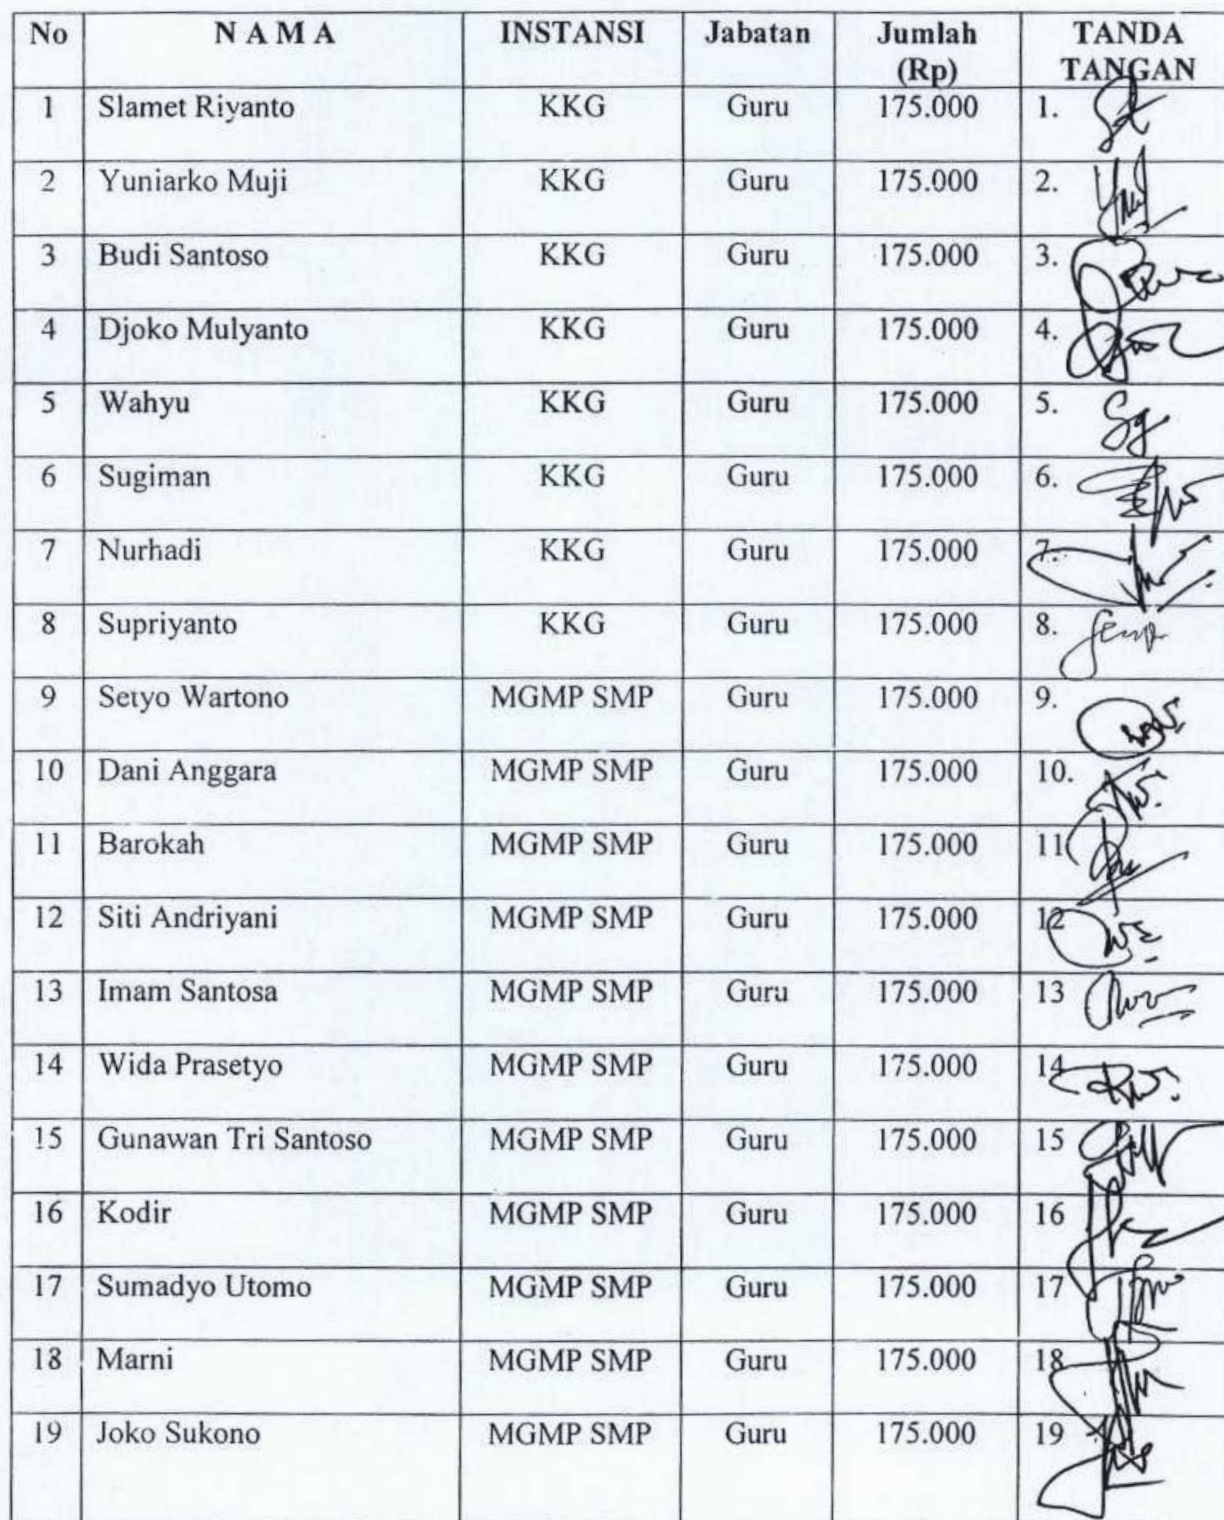 No N A M A INSTANSI Jabatan Jumlah (Rp) TANDA TANGAN
1 Slamet Riyanto KKG Guru 175.000 1.
2 Yuniarko Muji KKG Guru 175.000 2.
3 Budi Santoso KKG Guru 175.000 3.
4 Djoko Mulyanto KKG Guru 175.000 4.
5 Wahyu KKG Guru 175.000 5.
6 Sugiman KKG Guru 175.000 6.
7 Nurhadi KKG Guru 175.000 7.
8 Supriyanto KKG Guru 175.000 8.
9 Setyo Wartono MGMP SMP Guru 175.000 9.
10 Dani Anggara MGMP SMP Guru 175.000 10.
11 Barokah MGMP SMP Guru 175.000 11
12 Siti Andriyani MGMP SMP Guru 175.000 12
13 Imam Santosa MGMP SMP Guru 175.000 13
14 Wida Prasetyo MGMP SMP Guru 175.000 14
15 Gunawan Tri Santoso MGMP SMP Guru 175.000 15
16 Kodir MGMP SMP Guru 175.000 16
17 Sumadyo Utomo MGMP SMP Guru 175.000 17
18 Marni MGMP SMP Guru 175.000 18
19 Joko Sukono MGMP SMP Guru 175.000 19